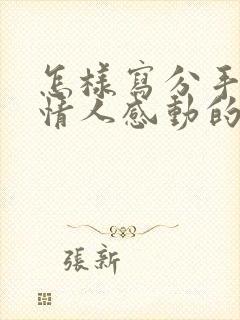 怎樣寫分手
情人感動的
張新